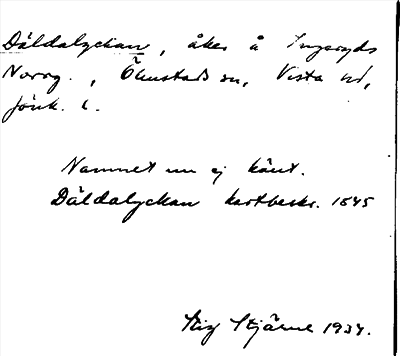 Däldalyckan, åker å Ingaryds
Norrg., Ölmstads sn, Vista hd,
Jönk. l.
Namnet nu ej känt.
Däldalyckan kartbeskr. 1845
Stig Stjärne 1934.